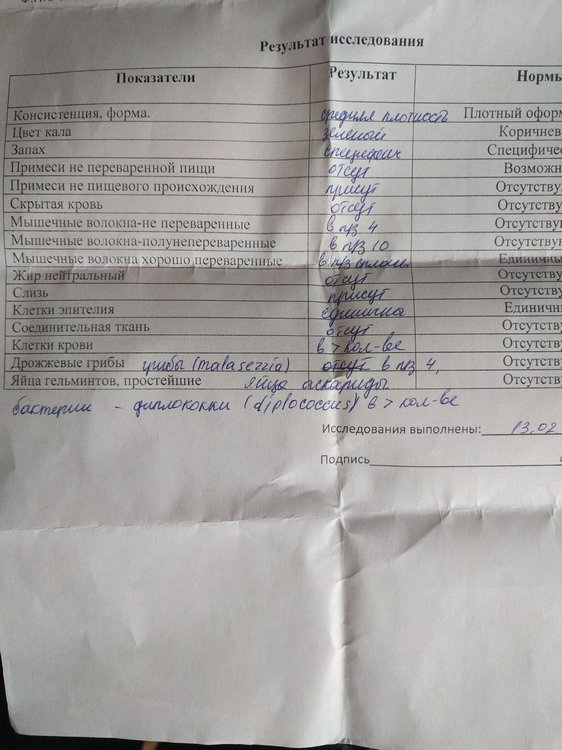 Результат исследования
Показатели Результат Нормы
Консистенция, форма. средняя плотность Плотный оформ
Цвет кала зеленый Коричнев
Запах специфич Специфичес
Примеси не переваренной пищи отсут Возможн
Примеси не пищевого происхождения присут Отсутству
Скрытая кровь отсут Отсутству
Мышечные волокна-не переваренные в п/з 4 Отсутству
Мышечные волокна-полунепереваренные в п/з 10 Отсутству
Мышечные волокна хорошо переваренные в п/з сплошь Единичны
Жир нейтральный отсут Отсутству
Слизь присут Отсутству
Клетки эпителия единично Единичн
Соединительная ткань отсут Отсутству
Клетки крови в > кол-ве Отсутству
Дрожжевые грибы грибы (malasezzia) отсут в п/з 4, Отсутст
Яйца гельминтов, простейшие яйца аскариды Отсутст
бактерии - диплококки (diplococcus) в > кол-ве
Исследования выполнены: 13.02
Подпись